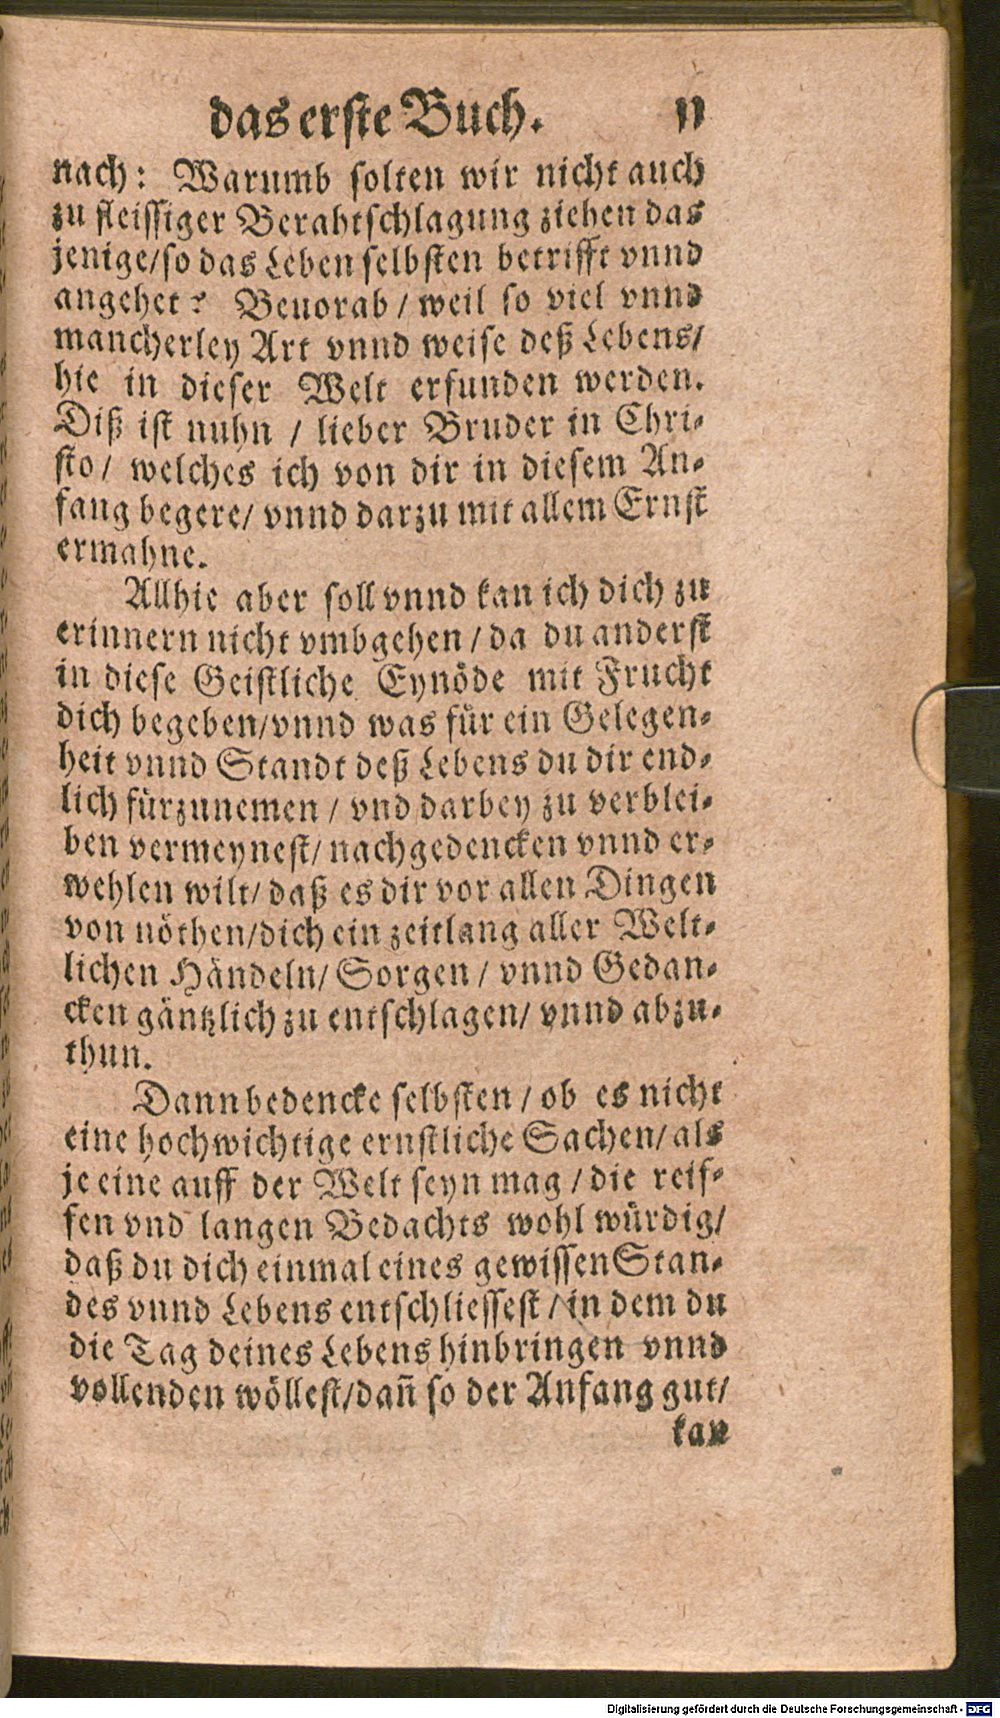 das erste Buch. 11
nach: Warumb solten wir nicht auch
zu fleissiger Berahtschlagung ziehen das
jenige/so das Leben selbsten betrifft vnnd
angehet? Beuorab / weil so viel vnnd
mancherley Art vnnd weise deß Lebens/
hie in dieser Welt erfunden werden.
Diß ist nuhn / lieber Bruder in Chri-
sto/ welches ich von dir in diesem An-
fang begere/ vnnd darzu mit allem Ernst
ermahne.
Allhie aber soll vnnd kan ich dich zu
erinnern nicht vmbgehen / da du anderst
in diese Geistliche Eynöde mit Frucht
dich begeben/vnnd was für ein Gelegen-
heit vnnd Standt deß Lebens du dir end-
lich fürzunemen / vnd darbey zu verblei-
ben vermeynest/ nachgedencken vnnd er-
wehlen wilt/ daß es dir vor allen Dingen
von nöthen/dich ein zeitlang aller Welt-
lichen Händeln/ Sorgen / vnnd Gedan-
cken gäntzlich zu entschlagen/ vnnd abzu-
thun.
Dann bedencke selbsten / ob es nicht
eine hochwichtige ernstliche Sachen/ als
je eine auff der Welt seyn mag / die reif-
fen vnd langen Bedachts wohl würdig/
daß du dich einmal eines gewissen Stan-
des vnnd Lebens entschliessest / in dem du
die Tag deines Lebens hinbringen vnnd
vollenden wöllest/dañ so der Anfang gut/
kan
Digitalisierung gefördert durch die Deutsche Forschungsgemeinschaft - DFG